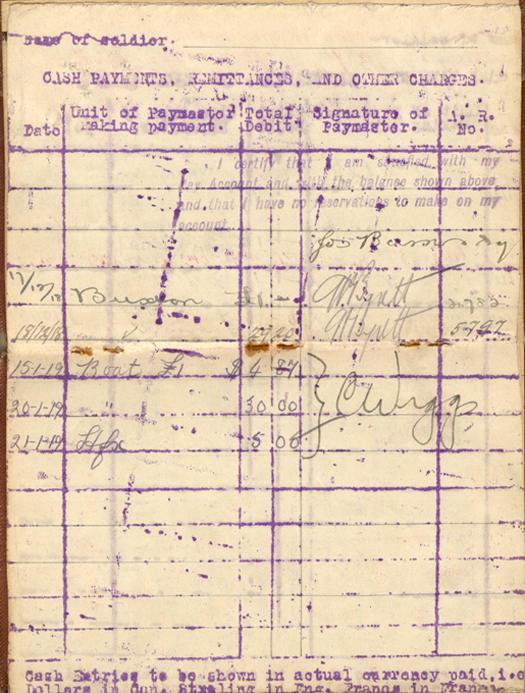 Name of Soldier.
CASH PAYMENTS, REMITTANCES, AND OTHER CHARGES.
Date Unit of Paymaster making payment. Total Debit Signature of Paymaster. A. R. No.
I certify that I am satisfied with my
Pay Account and with the balance shown above
and that I have no reservations to make on my
account.
17/12/18 Buxton £1 -
18/12/18 5797
15-1-19 Boat £1 $4 87 C Wiggs
20-1-19 30 00
21-1-19 Hfx 5 00
Cash Entries to be shown in actual currency paid, i.e
Dollars in Can. Streling in Eng. Francs in France